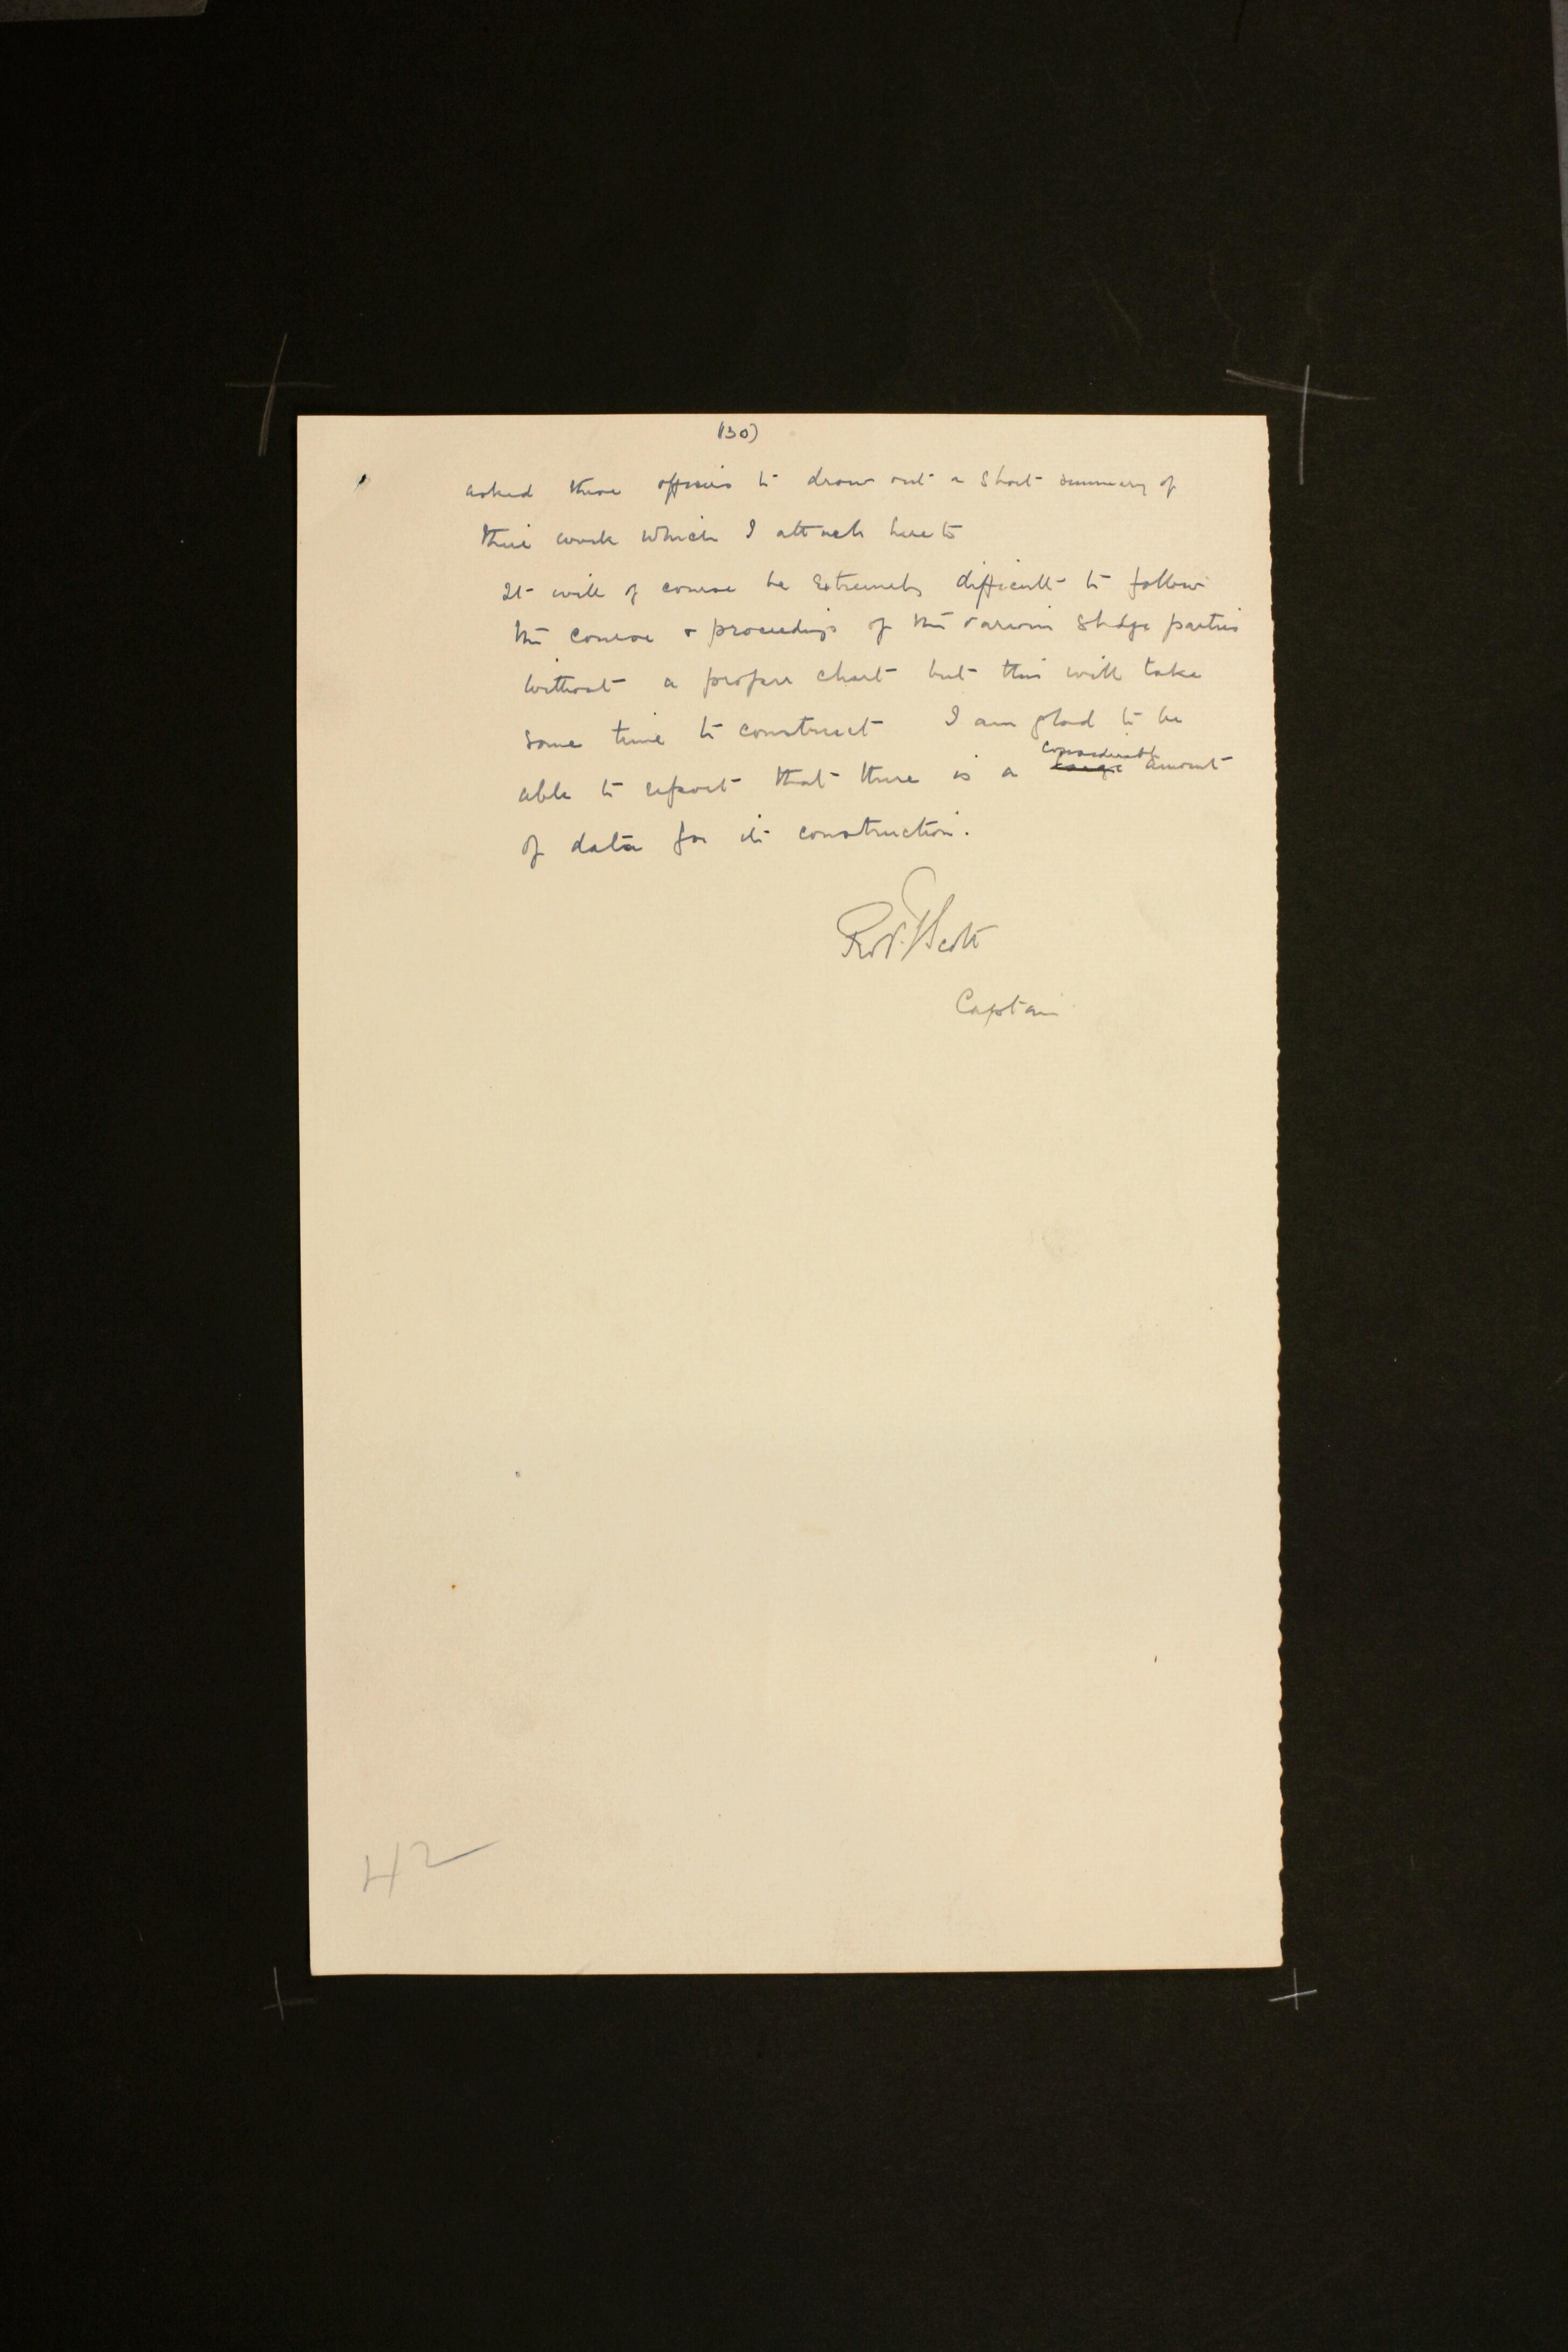 (30)
asked these officers to draw out a short summary of
their work which I attach hereto
It will of course be extremely difficult to follow
the course & proceedings of the various sledge parties
without a proper chart but this will take
some time to construct I am glad to be
considerable
able to report that there is a large amount
of data for its construction.
RobtFScott
Captain
42